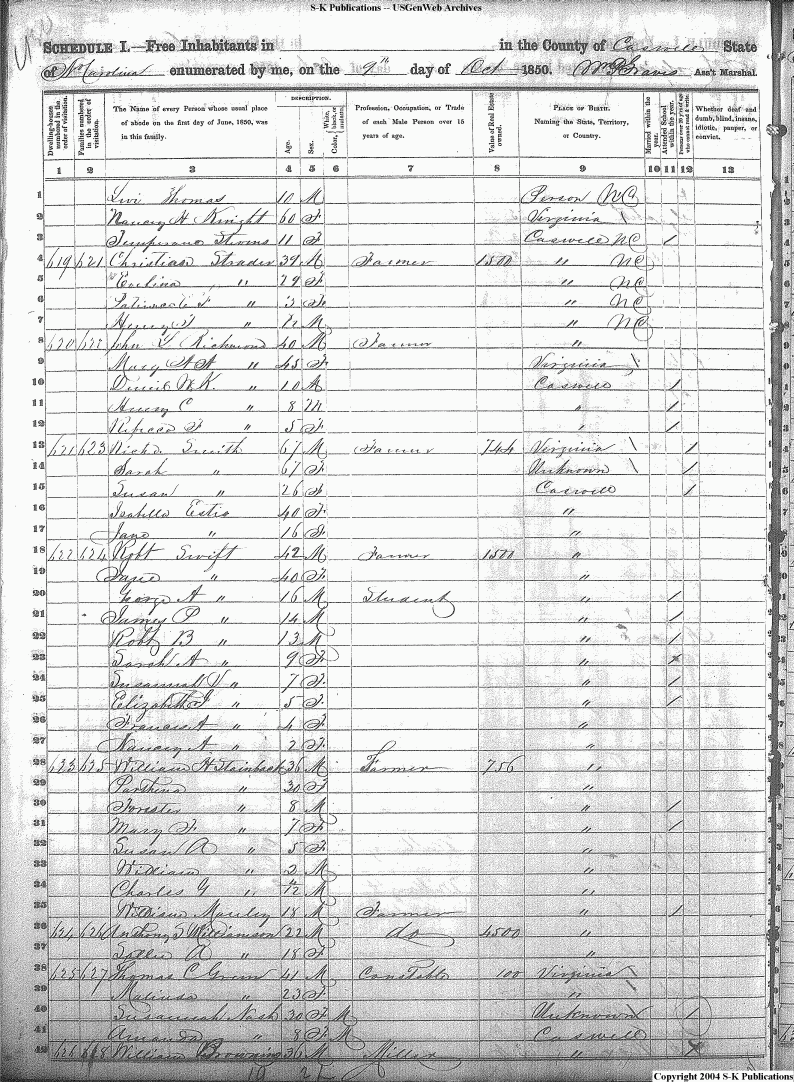 S-K Publications -- USGenWeb Archives
SCHEDULE I.—Free Inhabitants in in the County of Caswell State
of No Carolina enumerated by me, on the 9th day of Oct 1850. Ass't Marshal.
DESCRIPTION.
Dwelling-houses numbered in the order of visitation.
Families numbered in the order of visitation.
The Name of every Person whose usual place of abode on the first day of June, 1850, was in this family.
Age.
Sex.
Color, White, black, or mulatto.
Profession, Occupation, or Trade of each Male Person over 15 years of age.
Value of Real Estate owned.
PLACE OF BIRTH.
Naming the State, Territory, or Country.
Married within the year.
Attended School within the year.
Persons over 20 y'rs of age who cannot read & write.
Whether deaf and dumb, blind, insane, idiotic, pauper, or convict.
1 2 3 4 5 6 7 8 9 10 11 12 13
1 Levi Thomas 10 M Person NC
2 Nancy H Knight 60 F Virginia \
3 Stevens 11 F Caswell NC /
4 619 621 Christian Strader 39 M Farmer 1500 " NC
5 Evelina " 29 F " NC
6 " 3 F " NC
7 Henry " M " NC
8 620 622 John Richmond 40 M Farmer "
9 Mary " 45 F Virginia \
10 " 10 M Caswell /
11 Henry C " 8 M " /
12 Rebecca F " 5 F " /
13 621 623 Richd Smith 67 M Farmer 744 Virginia \ /
14 Sarah " 67 F Unknown \ /
15 Susan " 26 F Caswell /
16 Isabella Estis 40 F "
17 Jane " 16 F "
18 622 624 Swift 42 M Farmer 1500 "
19 " 40 F "
20 George A " 16 M Student " /
21 James P " 14 M " /
22 Robt B " 13 M " /
23 Sarah A " 9 F " x
24 Susannah " 7 F " /
25 Elizabeth " 5 F " /
26 Frances A " 4 F "
27 Nancy A " 2 F "
28 623 625 William H Stainback 36 M Farmer 756 "
29 Parthena " 30 F "
30 Forester " 8 M " /
31 Mary F " 7 F " /
32 Susan A " 5 F "
33 William " 2 M "
34 Charles G " /12 M "
35 William 18 M Farmer " /
36 624 626 Anthony S Williamson 22 M do 4500 "
37 Sallie A " 18 F "
38 625 627 Thomas C Green 41 M Constable 100 Virginia \
39 Malinda " 23 F "
40 Susannah Nash 30 F M Unknown \ /
41 Amanda " 8 F M Caswell
42 626 628 William Browning 36 M Miller " x
Copyright 2004 S-K Publications